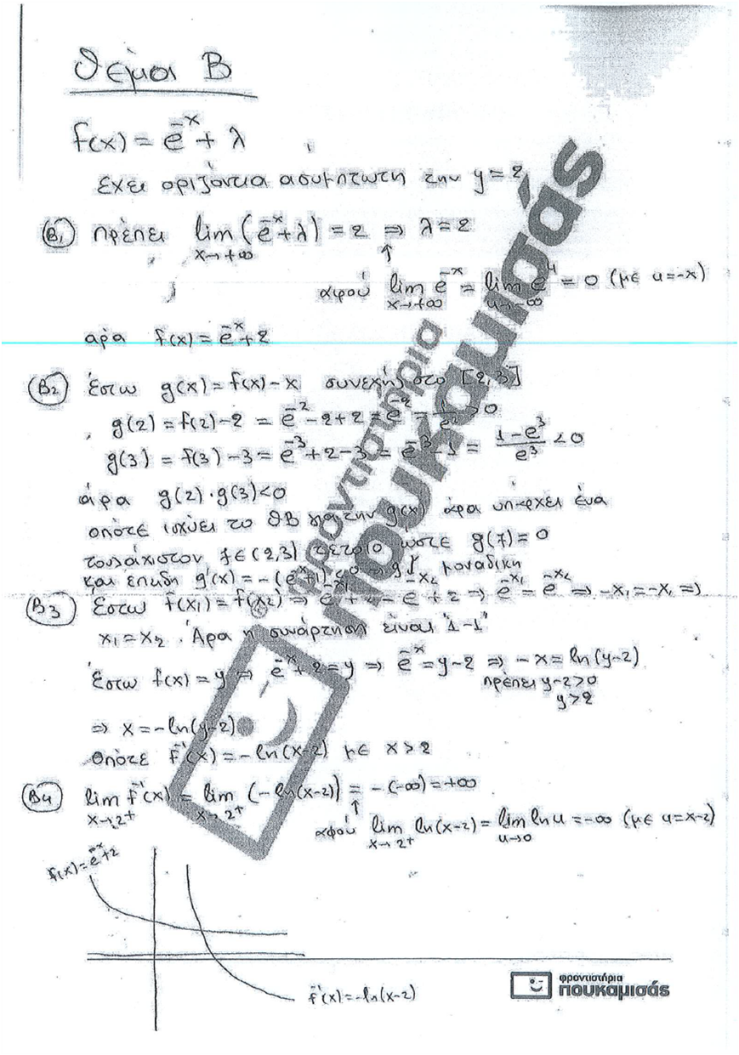 Θέμα Β
f(x) = e^{-x} + λ
έχει οριζόντια ασύμπτωτη την y = 2
(Β1) πρέπει lim_{x→+∞} (e^{-x}+λ) = 2 ⇒ λ = 2
↑
αφού lim_{x→+∞} e^{-x} = lim_{u→-∞} e^u = 0 (με u=-x)
άρα f(x) = e^{-x}+2
(Β2) Έστω g(x) = f(x)-x συνεχής στο [2,3]
g(2) = f(2)-2 = e^{-2}-2+2 = e^{-2} = >0
g(3) = f(3)-3 = e^{-3}+2-3 = e^{-3}-1 = \frac{1-e^3}{e^3} <0
άρα g(2)·g(3)<0
οπότε ισχύει το ΘΒ για την g(x) άρα υπάρχει ένα
τουλάχιστον ξ∈(2,3) τέτοιο ώστε g(ξ) = 0
και επειδή g'(x) = -(e^{-x}+1)<0 μοναδική
(Β3) Έστω f(x1) = f(x2) ⇒ e^{-x1}+2 = e^{-x2}+2 ⇒ e^{-x1} = e^{-x2} ⇒ -x1=-x1 ⇒
x1 = x2. Άρα η συνάρτηση είναι "1-1"
Έστω f(x) = y ⇒ e^{-x}+2=y ⇒ e^{-x}=y-2 ⇒ -x = ln(y-2)
πρέπει y-2>0
y>2
⇒ x = -ln(y-2)
Οπότε f^{-1}(x) = -ln(x-2) με x>2
(Β4) lim_{x→2+} f^{-1}(x) = lim_{x→2+} (-ln(x-2)) = -(-∞) = +∞
↑
αφού lim_{x→2+} ln(x-2) = lim_{u→0} ln u = -∞ (με u=x-2)
f(x) = e^{-x}+2
f^{-1}(x) = -ln(x-2)
φροντιστήρια
πουκαμισάς
φροντιστήρια
πουκαμισάς